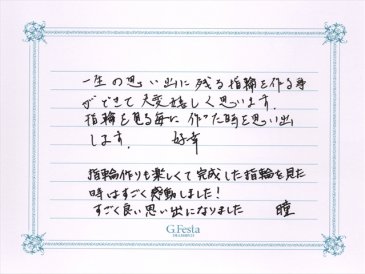 一生の思い出に残る指輪を作る事
ができて大変嬉しく思います。
指輪を見る毎に作った時を思い出
します。 好幸
指輪作りも楽しくて完成した指輪を見た
時はすごく感動しました!
すごく良い思い出になりました 瞳
G.Festa